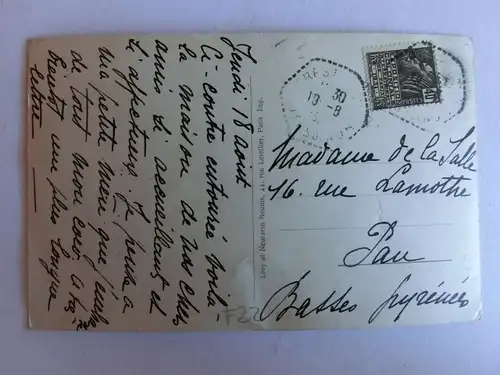 Jeudi 18 août
Ci-contre entourée voilà
la maison de nos chers
amis si accueillants et
si affectueux. Je
ma petite mère que
de tout mon cœur à
Bientôt une plus longue
lettre
Lévy et Neurdein Réunis, 44, rue Letellier, Paris Imp.
Madame de la Salle
16. rue Lamothe
Pau
Basses Pyrénées
F22
BREST
30
19-8